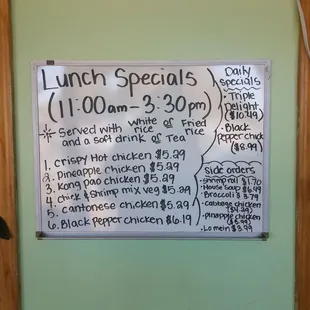 Lunch Specials
(11:00am - 3:30pm)
* Served with White rice or Fried rice
and a soft drink or Tea
1. Crispy Hot chicken $5.29
2. Pineapple chicken $5.29
3. Kong pao chicken $5.29
4. chick & Shrimp mix veg $5.29
5. cantonese chicken $5.29
6. Black pepper chicken $6.19
Daily
specials
• Triple
Delight
($10.49)
• Black
pepper chick
($8.99)
side orders
• shrimp roll $1.70
• House Soup $6.99
• Broccoli $3.79
• cabbage chicken
• pineapple chicken
($5.99)
• Lo mein $3.99